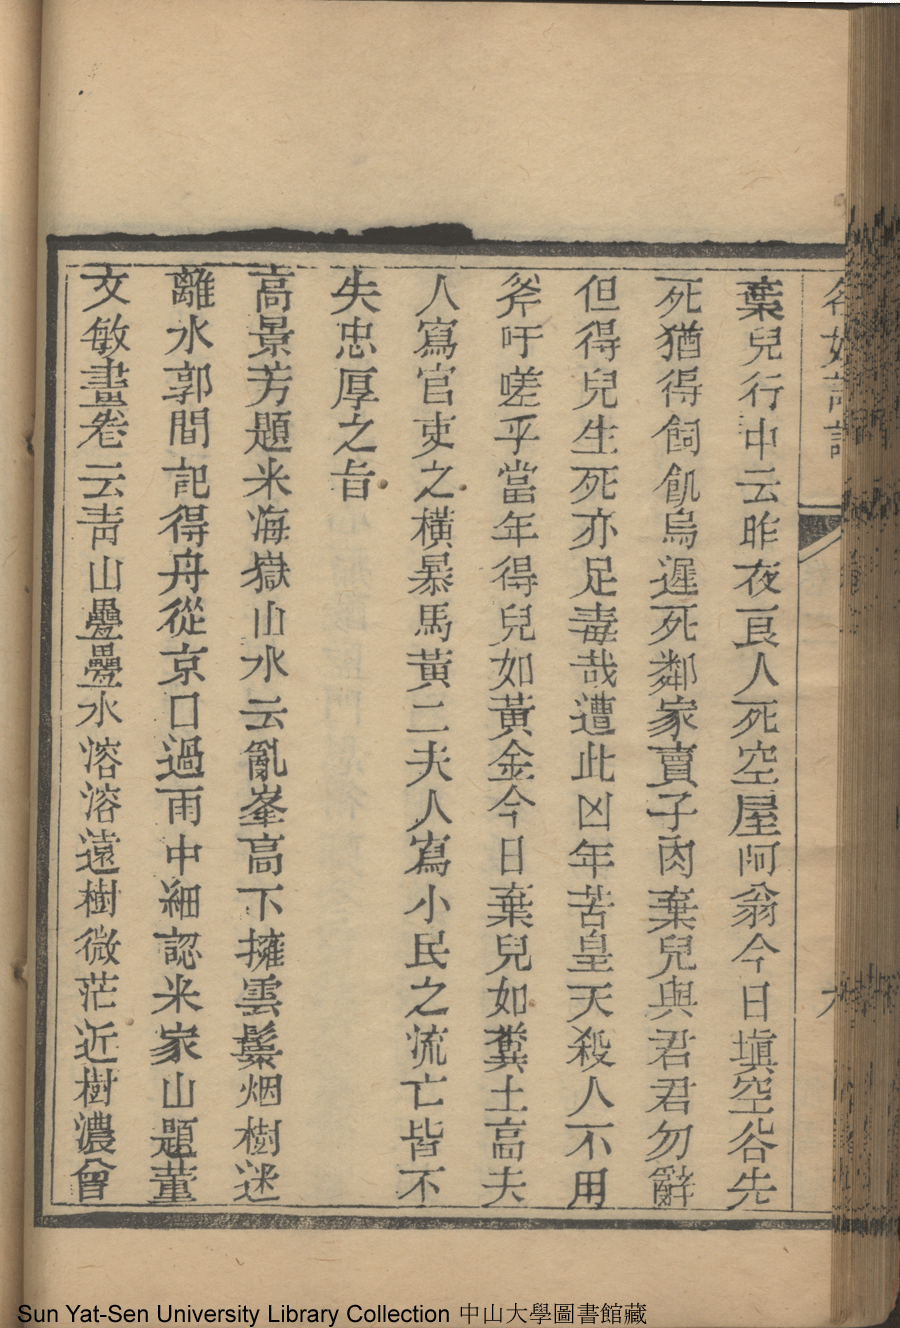 棄兒行中云昨夜良人死空屋阿翁今日塡空谷先
死猶得飼飢烏遲死鄰家賣子肉棄兒與君君勿辭
但得兒生死亦足毒哉遭此凶年苦皇天殺人不用
斧吁嗟乎當年得兒如黃金今日棄兒如糞土高夫
人寫官吏之橫暴馬黃二夫人寫小民之流亡皆不
失忠厚之旨
高景芳題米海嶽山水云亂峯高下擁雲鬟烟樹迷
離水郭間記得舟從京口過雨中細認米家山題董
文敏畫卷云靑山疊疊水溶溶遠樹微茫近樹濃曾
Sun Yat-Sen University Library Collection 中山大學圖書館藏